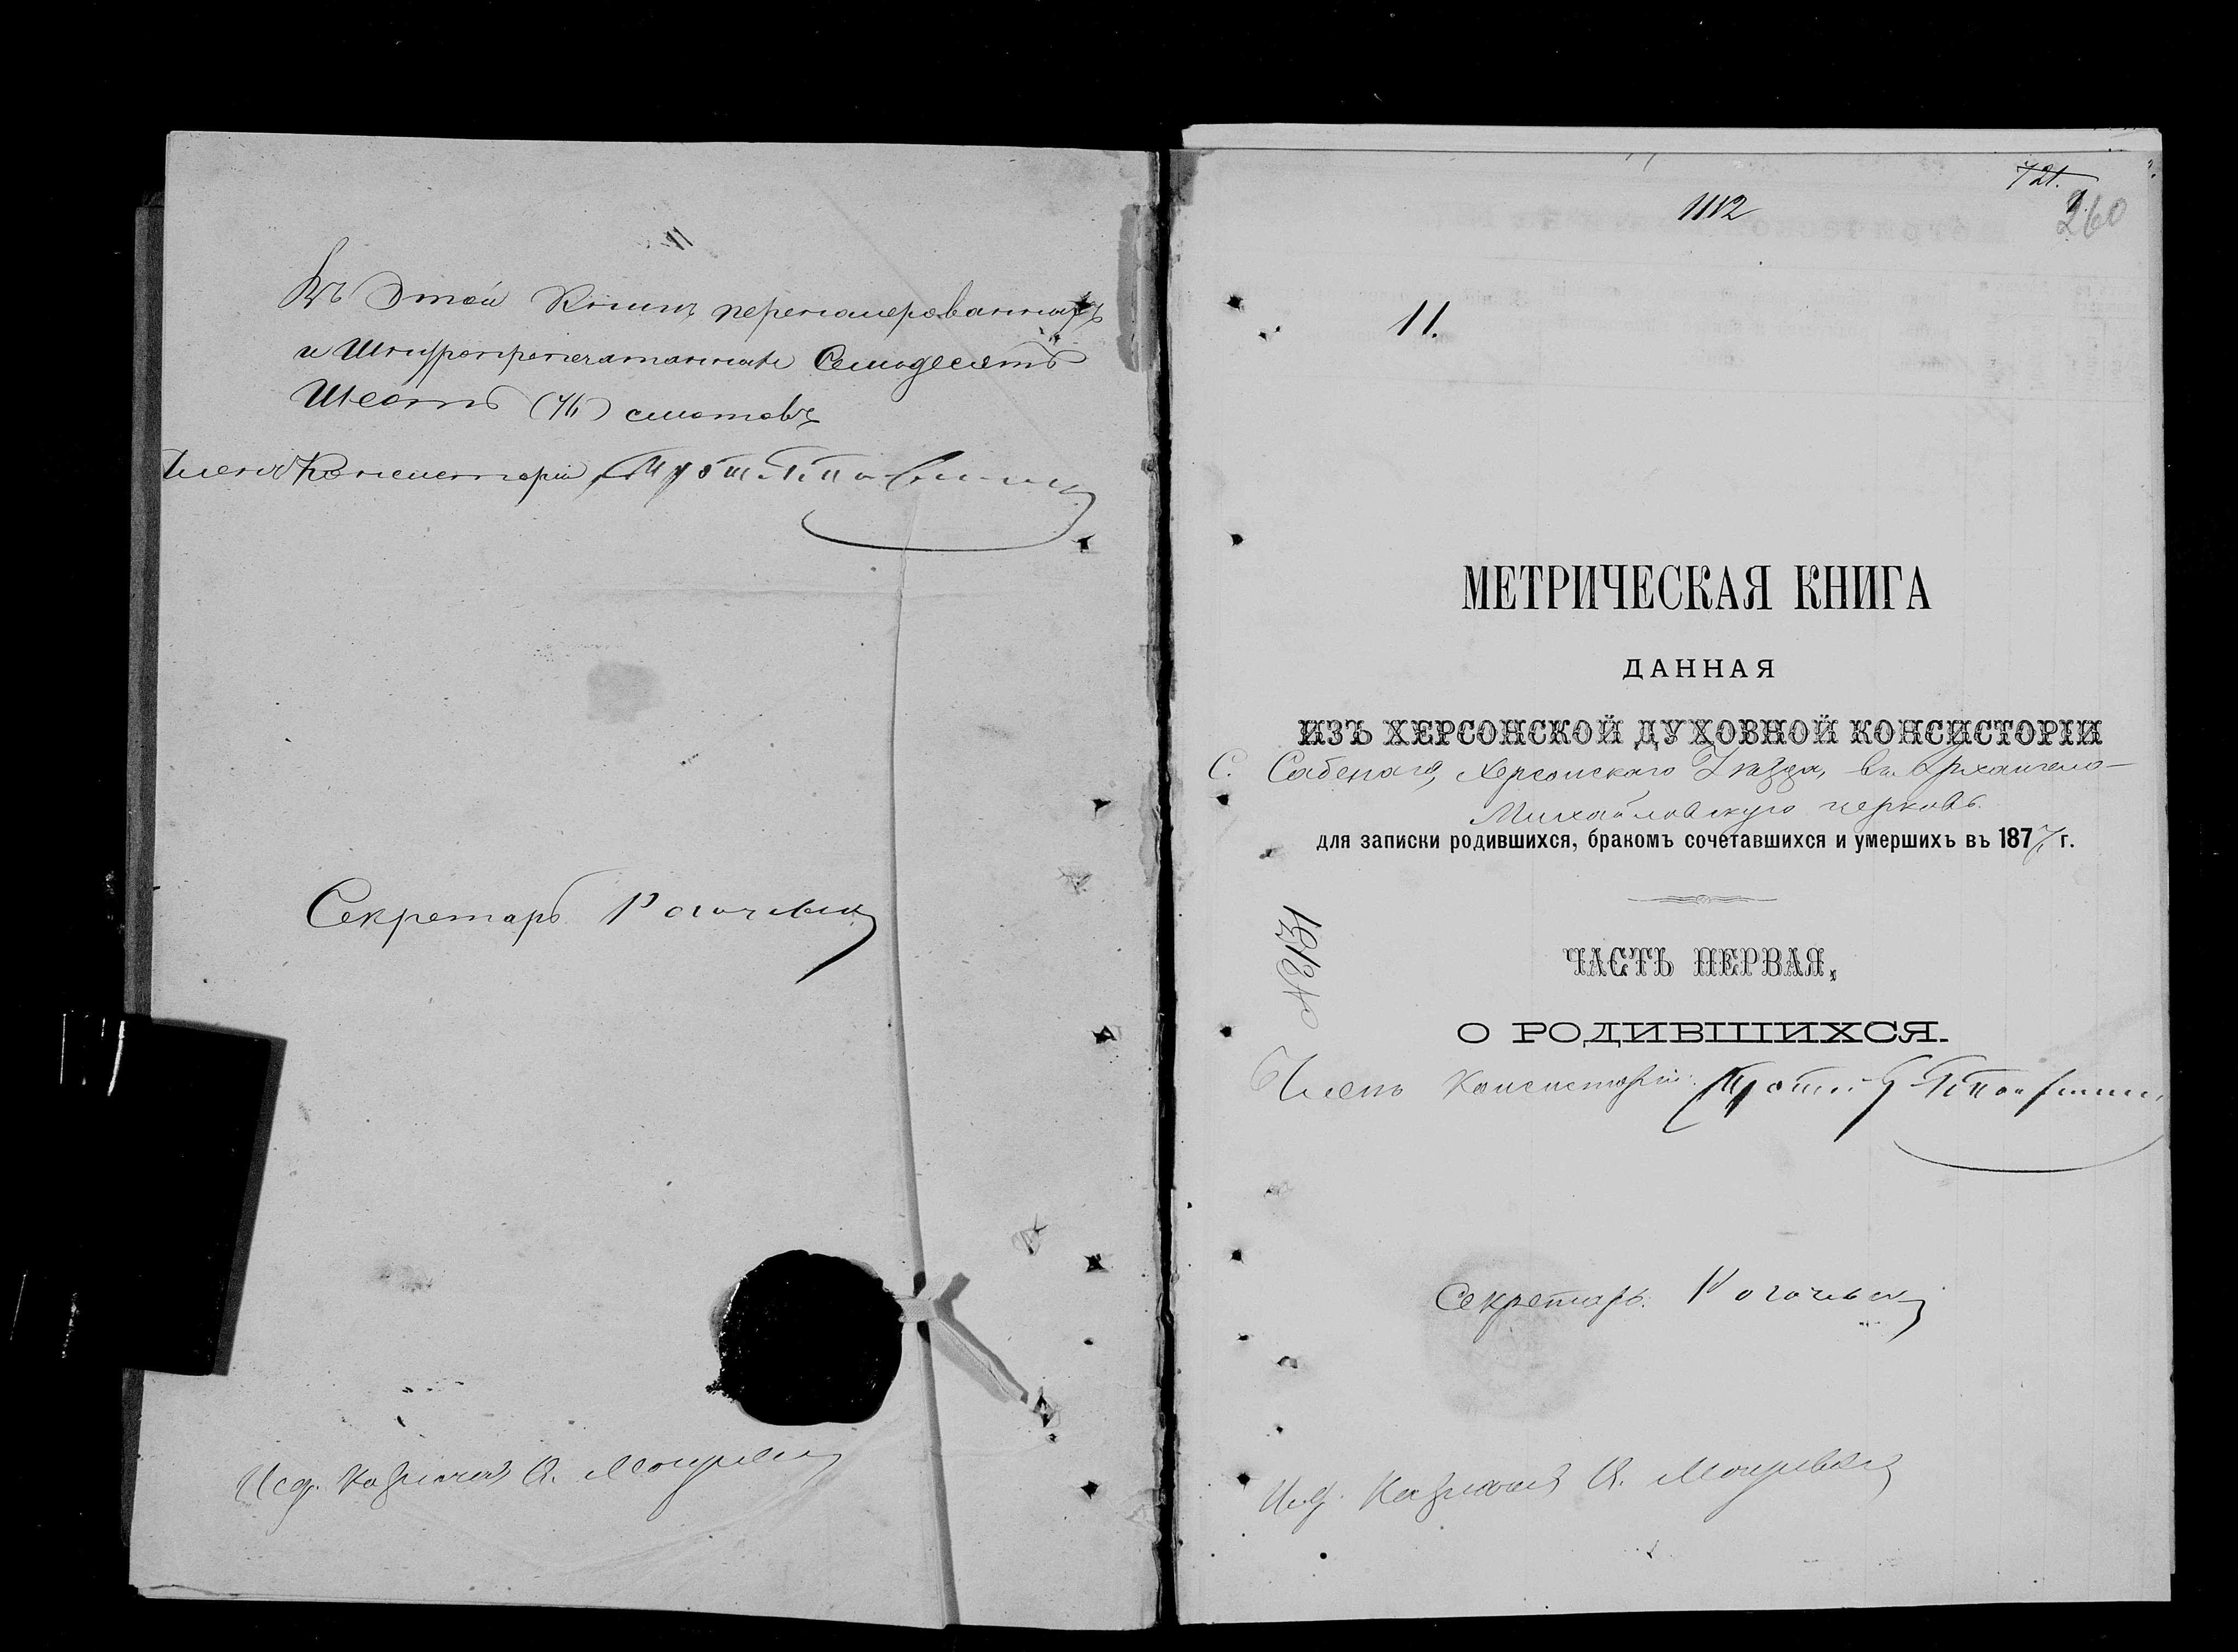 11
Въ этой Книгѣ перенумерованныхъ
и Шнуропрепечатанныхъ Семьдесятъ
Шесть (76) листовъ
Членъ Консисторіи Прот.
Секретарь
Исд. Казначея А.
721.
1112
260
11.
МЕТРИЧЕСКАЯ КНИГА
ДАННАЯ
ИЗЪ ХЕРСОНСКОЙ ДУХОВНОЙ КОНСИСТОРІИ
С. Херсонскаго Уѣзда, въ Архангело-
Михайловскую церковь.
для записки родившихся, бракомъ сочетавшихся и умершихъ въ 1877 г.
№ 2131
ЧАСТЬ ПЕРВАЯ,
О РОДИВШИХСЯ.
Членъ Консисторіи
Секретарь
Исд. Казначея А.